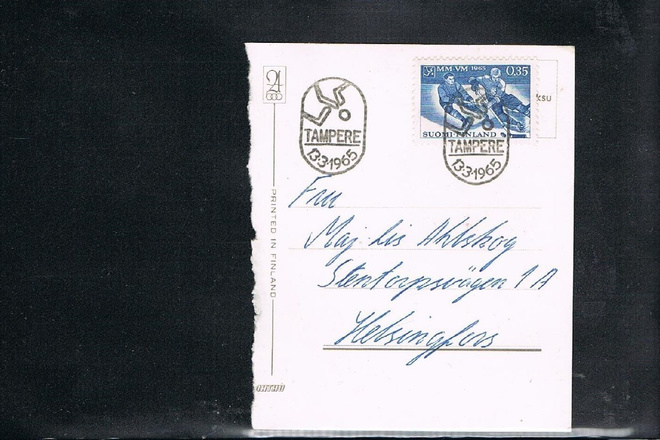 MM-VM 1965 0.35
ksu
SUOMI-FINLAND
TAMPERE
13·3·1965
TAMPERE
13·3·1965
PRINTED IN FINLAND
Fru
Maj-Lis Ahlskog
Stentorpsvägen 1 A
Helsingfors